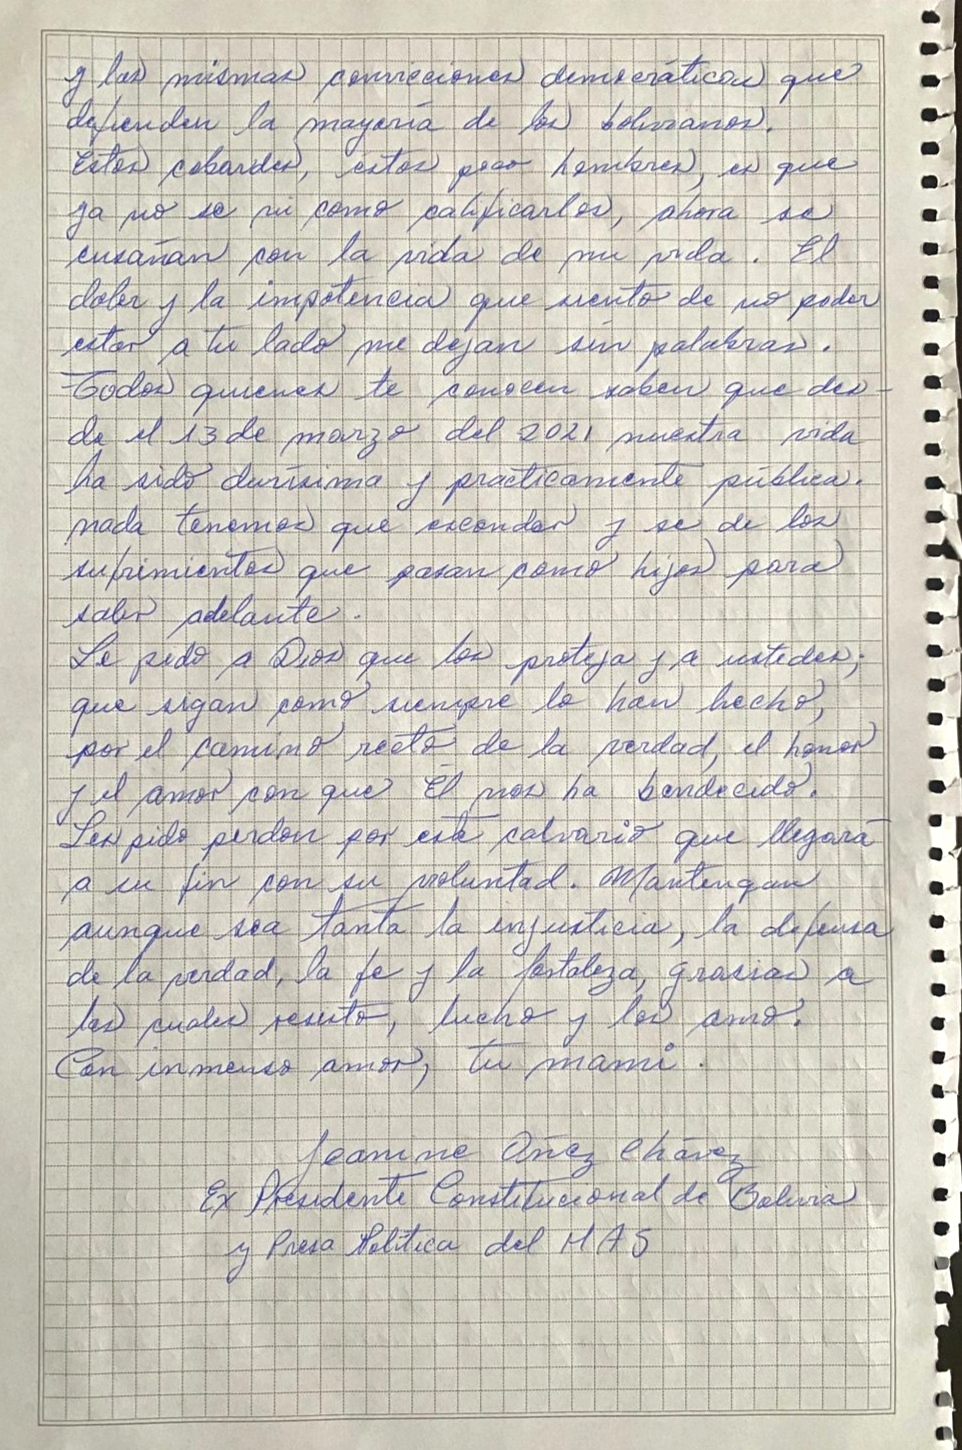 y las mismas convicciones democráticas que
defienden la mayoría de los bolivianos.
Estos cobardes, estos poco hombres, es que
ya no se ni como calificarlos, ahora se
ensañan con la vida de mi vida. El
dolor y la impotencia que siento de no poder
estar a tu lado me dejan sin palabras.
Todos quienes te conocen saben que des-
de el 13 de marzo del 2021 nuestra vida
ha sido durísima y prácticamente pública.
nada tenemos que esconder y se de los
sufrimientos que pasan como hijos para
salir adelante.
Le pido a Dios que los proteja y a ustedes;
que sigan como siempre lo han hecho,
por el camino recto de la verdad, el honor
y el amor con que Él nos ha bendecido.
Les pido perdon por este calvario que llegará
a su fin con su voluntad. Mantengan
aunque sea tanta la injusticia, la defensa
de la verdad, la fe y la fortaleza, gracias a
las cuales resisto, lucho y los amo.
Con inmenso amor, tu mami.
Jeanine Áñez Chávez
Ex Presidente Constitucional de Bolivia
y Presa Política del MAS